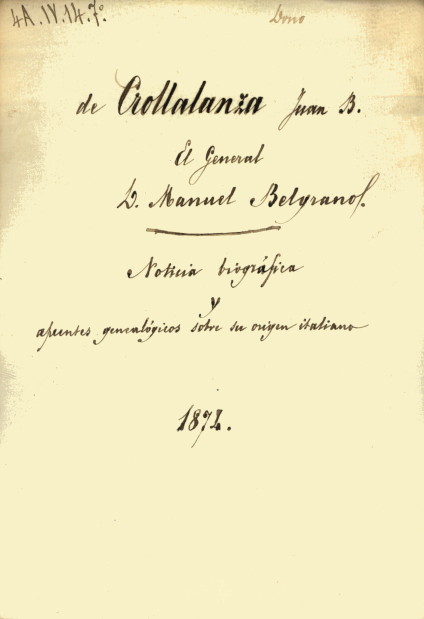 4A.IV.14.7º
Dono
de Crollalanza Juan B.
El General
D. Manuel Belgrano.
Noticia biográfica
y
apuentes genealógicos sobre su origen italiano
1874.